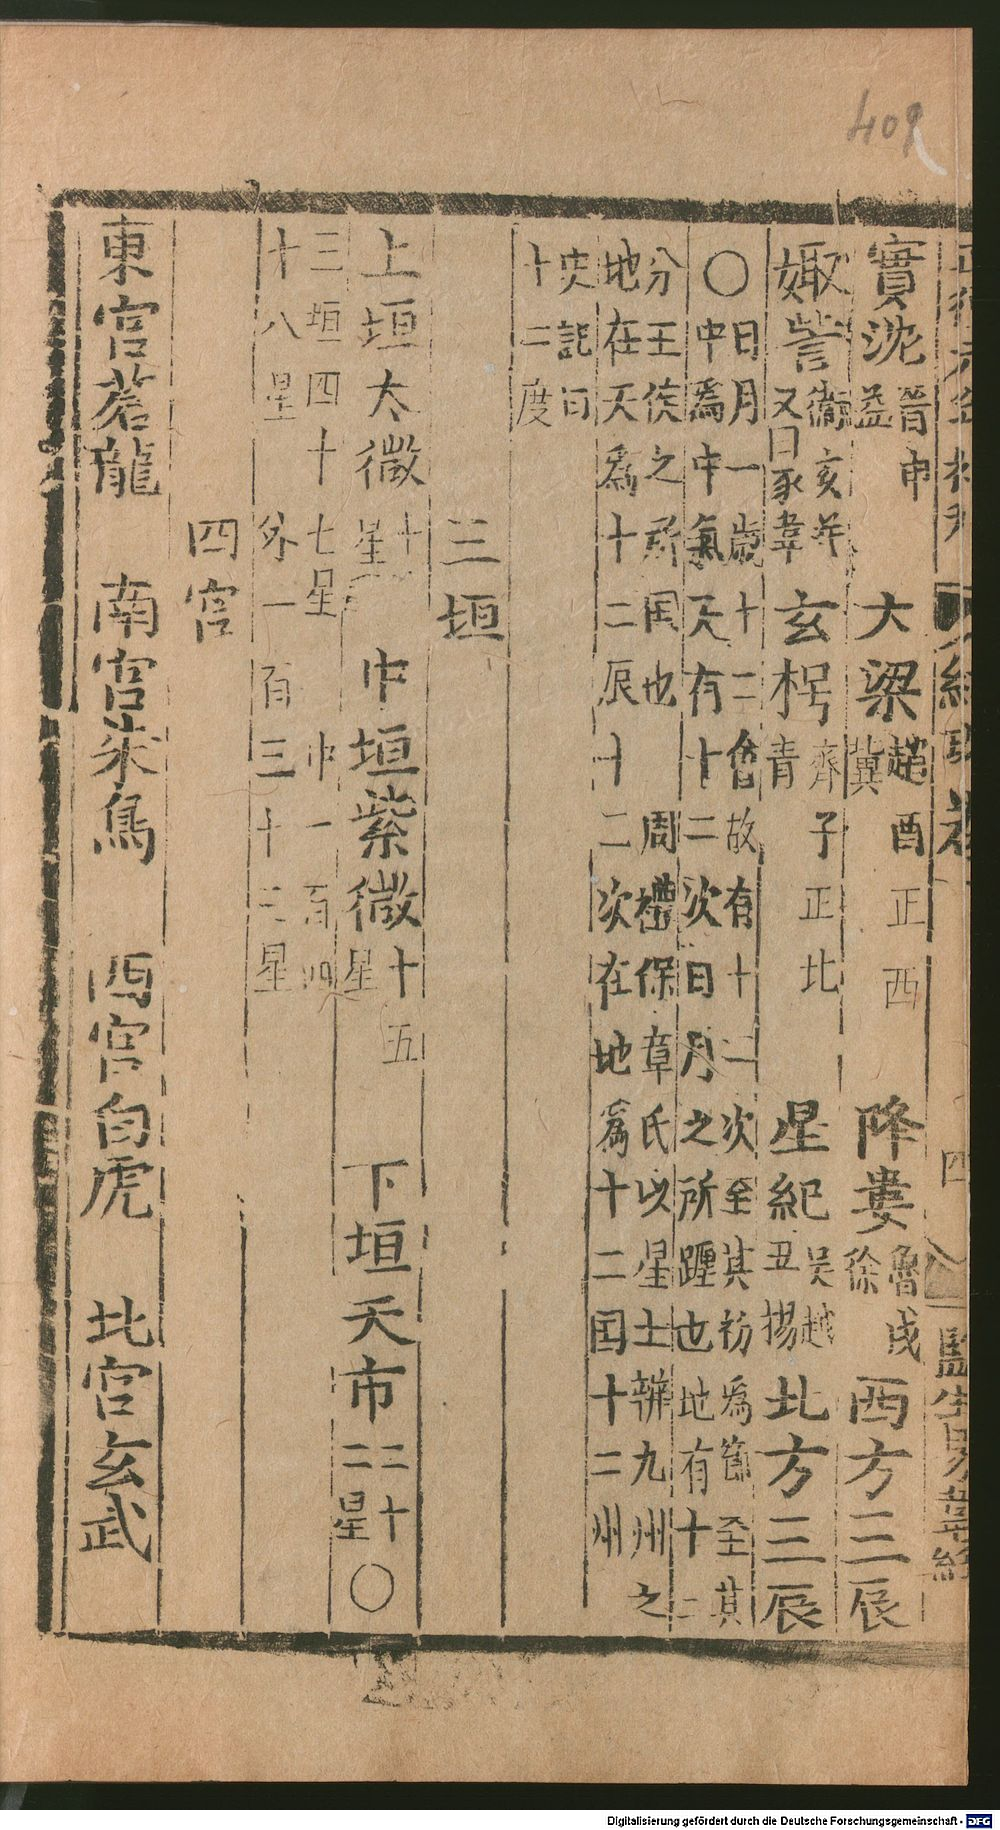 409
四
實沈 晉申 益 大梁 趙酉正西 冀 降婁 魯戌 徐 西方三辰
娵訾 衛亥并 又曰豕韋 玄枵 齊子正北 青 星紀 吳越 丑揚 北方三辰
〇日月一歲十二會故有十二次至其初爲節至其
中爲中氣天有十二次日月之所躔也地有十二
分王侯之所国也 周禮保章氏以星土辨九州之
地在天爲十二辰十二次在地爲十二国十二州
十二度
三垣
上垣太微 十 星 中垣紫微 十五星 下垣天市 二十二星 〇
三垣四十七星 中一百四
十八星 外一百三十二星
四宮
東宮蒼龍 南宮朱鳥 西宮白虎 北宮玄武
Digitalisierung gefördert durch die Deutsche Forschungsgemeinschaft - DFG